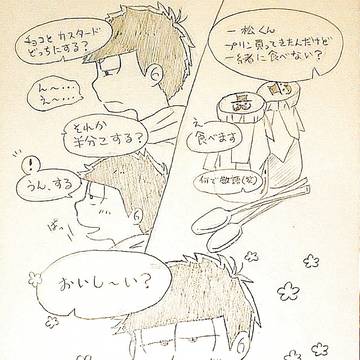 一松くん
プリン買ってきたんだけど
一緒に食べない?
え…
食べます
何で敬語(笑)
チョコとカスタード
どっちにする?
ん〜…
え〜…
それか
半分こする?
!
うん、する
ぱっ
おいし〜い?